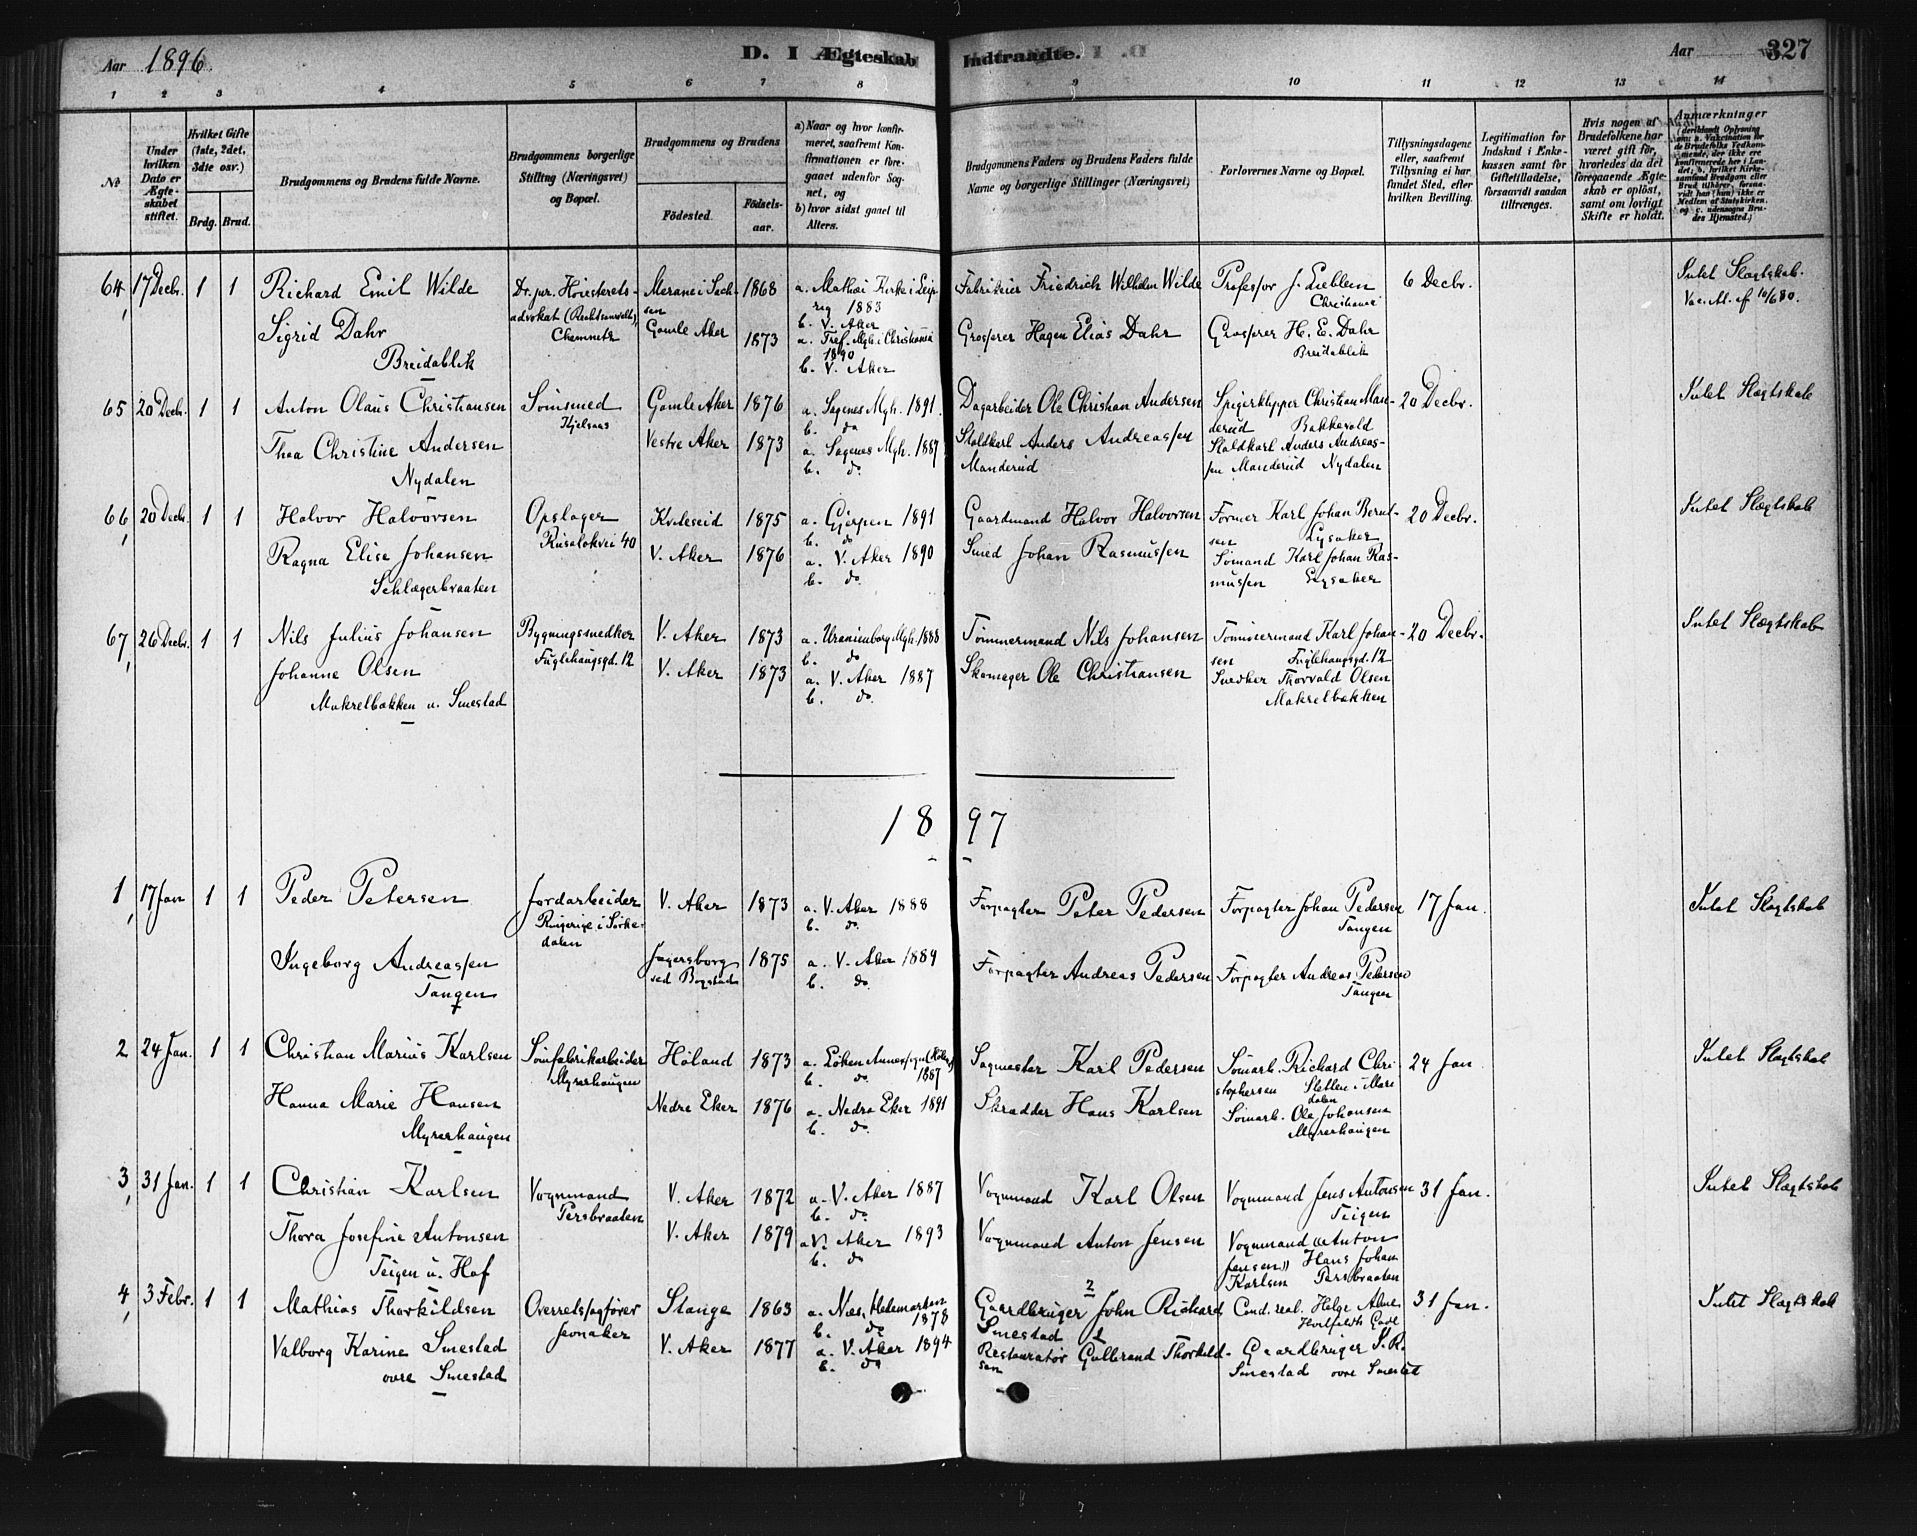 Aar 1896.
D. I Ægteskab Indtraadte.
Aar 327
1 2 3 4 5 6 7 8 9 10 11 12 13 14
No
Under hvilken Dato er Ægteskabet stiftet.
Hvilket Gifte (1ste, 2det, 3die osv.)
Brdg. Brud.
Brudgommens og Brudens fulde Navne.
Brudgommens borgerlige Stilling (Næringsvei) og Bopæl.
Brudgommens og Brudens
Födested.
Födselsaar.
a) Naar og hvor konfirmeret, saafremt Konfirmationen er foregaaet udenfor Sognet, og
b) hvor sidst gaaet til Alters.
Brudgommens Faders og Brudens Faders fulde Navne og borgerlige Stillinger (Næringsvei)
Forlovernes Navne og Bopæl.
Tillysningsdagene eller, saafremt Tillysning ei har fundet Sted, efter hvilken Bevilling.
Legitimation for Indskud i Enkekassen samt for Giftetilladelse, forsaavidt saadan tiltrænges.
Hvis nogen af Brudefolkene har været gift för, hvorledes da det foregaaende Ægteskab er oplöst, samt om lovligt Skifte er holdt.
Anmærkninger
64, 17 Decbr. 1 1 Richard Emil Wilde
Dr. jur. Höiesteretsadvokat (Rechtsanwalt), Chemnitz
Merane i Sachsen 1868
a. Mathæi Kirke i Leipzig 1883
b. V. Aker
Fabrikeier Friedrich Wilhelm Wilde
Professor J. Lieblein Christiania
6 Decbr.
Intet Slægtskab.
Vac. At. af 10/6 80.
Sigrid Dahr
Breidablik
Gamle Aker 1873
a. Tref. Mgh. i Christiania 1890
b. V. Aker
Grosserer Hagen Elias Dahr
Grosserer H. E. Dahr
Breidablik
65 20 Decbr. 1 1 Anton Olaus Christiansen
Sömsmed
Kjelsaas
Gamle Aker 1876
a. Sagenes Mgh. 1891.
b. do
Dagarbeider Ole Christian Andersen
Spigerklipper Christian Manderud Bakkevold
20 Decbr.
Intet Slægtskab
Thea Christine Andersen
Nydalen
Vestre Aker 1873
a. Sagenes Mgh. 1887
b. do.
Staldkarl Anders Andreassen Manderud
Staldkarl Anders Andreassen Manderud Nydalen
66, 20 Decbr. 1 1 Halvor Halvorsen
Opslager
Ruselökvei 40
Kviteseid 1875
a. Gjerpen 1891
b. do
Gaardmand Halvor Halvorsen
Former Karl Johan Berntsen Lysaker
20 Decbr.
Intet Slægtskab
Ragna Elise Johansen
Schlægerbraaten
V. Aker 1876
a. V. Aker 1890
b. do.
Smed Johan Rasmussen
Sömand Karl Johan Rasmussen Lysaker
67, 26 Decbr. 1 1 Nils Julius Johansen
Bygningssnedker
Fuglehaugsgd. 12
V. Aker 1873
a. Uranienborg Mgh. 1888
b. do
Tömmermand Nils Johansen
Tömmermand Karl Johansen Fuglehaugsgd. 12
20 Decbr.
Intet Slægtskab
Johanne Olsen
Makrelbakken u. Smestad
V. Aker 1873
a. V. Aker 1887
b. do.
Skomager Ole Christiansen
Snedker Thorvald Olsen
Makrelbakken
1897
1, 17 Jan 1 1 Peder Petersen
Jordarbeider
Ringerige i Sörkedalen
V. Aker 1873
a. V. Aker 1888
b. do.
Forpagter Peter Pedersen
Forpagter Johan Pedersen
Tangen
17 Jan.
Intet Slægtskab
Ingeborg Andreassen
Tangen
Jegersborg ved Bogstad 1875
a. V. Aker 1889
b. do.
Forpagter Andreas Pedersen
Forpagter Andreas Pedersen
Tangen
2 24 Jan. 1 1 Christian Marius Karlsen
Sömfabrikarbeider
Myrerhaugen
Höland 1873
a. Löken Annexsogn (Höland) 1887
b. do.
Sagmester Karl Pedersen
Sömarb. Richard Christophersen Sletten i Maridalen
24 Jan
Intet Slægtskab
Hanna Marie Hansen
Myrerhaugen
Nedre Eker 1876
a. Nedre Eker 1891
b. do.
Skrædder Hans Karlsen
Sömarb. Ole Johansen
Myrerhaugen
3, 31 Jan. 1 1 Christian Karlsen
Vognmand
Persbraaten
V. Aker 1872
a. V. Aker 1887
b. do.
Vognmand Karl Olsen
Vognmand Jens Antonsen
Teigen
31 Jan.
Intet Slægtskab
Thora Josefine Antonsen
Teigen u. Hof
V. Aker 1879
a. V. Aker 1893
b. do
Vognmand Anton Jensen
Vognmand Anton Jensen Hans Johan Karlsen Persbraaten
4, 3 Febr. 1 1 Mathias Thorkildsen
Overretssagförer
Jevnaker
Stange 1863
a. Næs, Hedemarken 1878
b. do
2
Gaardbruger John Richard Smestad
Cand. real. Helge Alme
Hvitfeldts Gade
31 Jan.
Intet Slægtskab
Valborg Karine Smestad
övre Smestad
V. Aker 1877
a. V. Aker 1894
b. do
1
Restauratör Gulbrand Thorkildsen
Gaardbruger J. R. Smestad övre Smestad